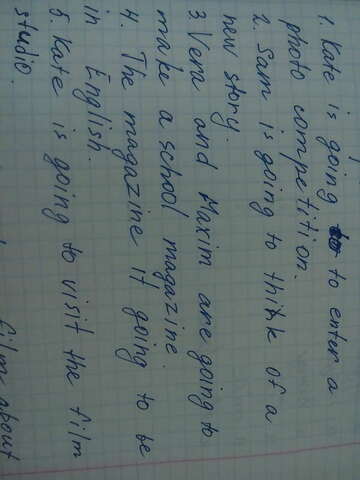 1. Kate is going to to enter a
photo competition.
2. Sam is going to think of a
new story.
3. Vera and Maxim are going to
make a school magazine.
4. The magazine it going to be
in English.
5. Kate is going to visit the film
studio.
film about